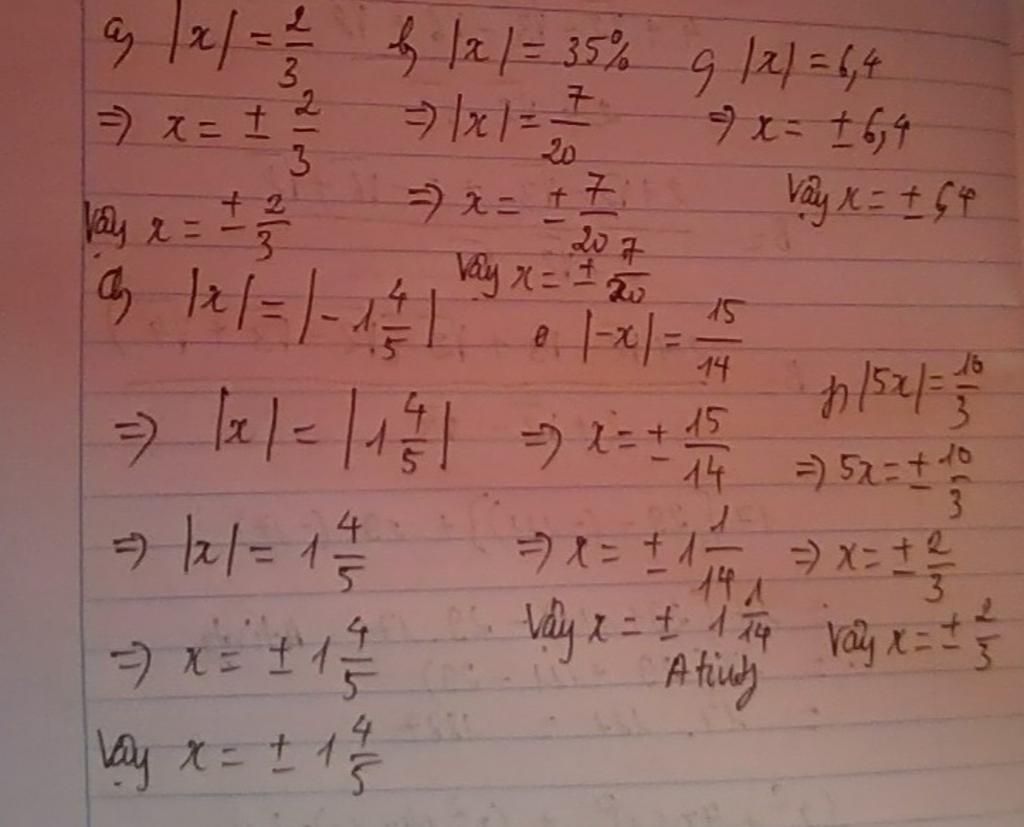 a) |x| = 2/3
⇒ x = ± 2/3
Vậy x = ± 2/3
b) |x| = 35%
⇒ |x| = 7/20
⇒ x = ± 7/20
Vậy x = ± 7/20
c) |x| = 6,4
⇒ x = ± 6,4
Vậy x = ± 6,4
d) |x| = |-1 4/5|
⇒ |x| = |1 4/5|
⇒ |x| = 1 4/5
⇒ x = ± 1 4/5
Vậy x = ± 1 4/5
e |-x| = 15/14
⇒ x = ± 15/14
⇒ x = ± 1 1/14
Vậy x = ± 1 1/14
|5x| = 10/3
⇒ 5x = ± 10/3
⇒ x = ± 2/3
Vậy x = ± 2/3